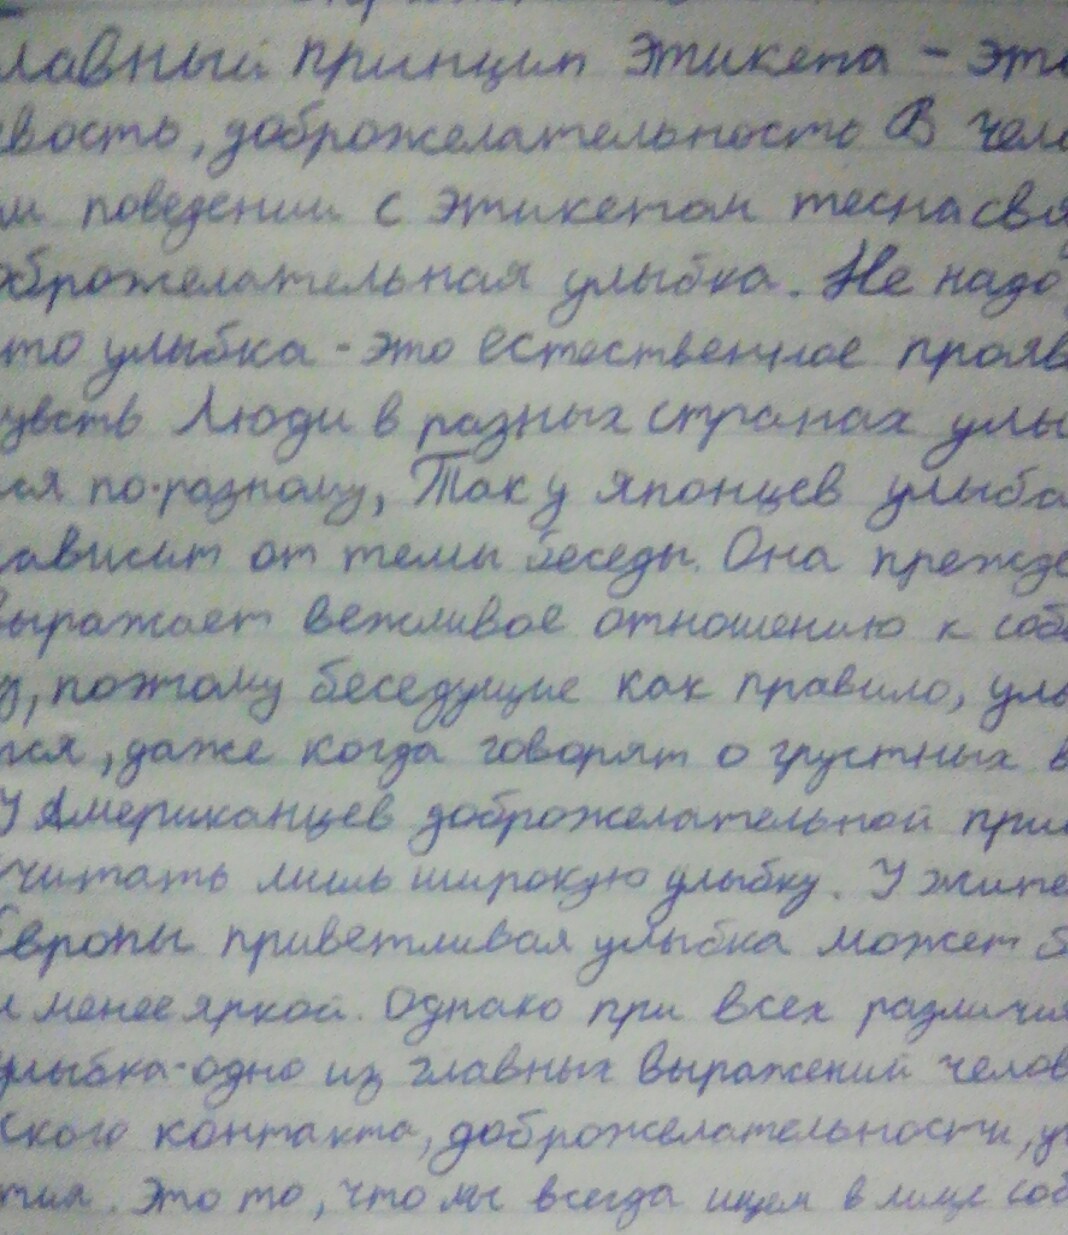 лавный принцип этикета - это
вость, доброжелательность В чело
м поведении с этикетом тесна свя
оброжелательная улыбка. Не надо
то улыбка - это естественное прояв
увств Люди в разных странах улы
ся по-разному, Так у японцев улыба
ависит от темы беседы. Она прежде
выражает вежливое отношению к собе
у, поэтому беседущие как правило, улы
тся, даже когда говорят о грустных в
У Американцев доброжелательной прин
читать лишь широкую улыбку. У жите
Европы приветливая улыбка может б
и менее яркой. Однако при всех различия
улыбка-одно из главных выражений челов
ского контакта, доброжелательности, уч
тия. Это то, что мы всегда ищем в лице соб